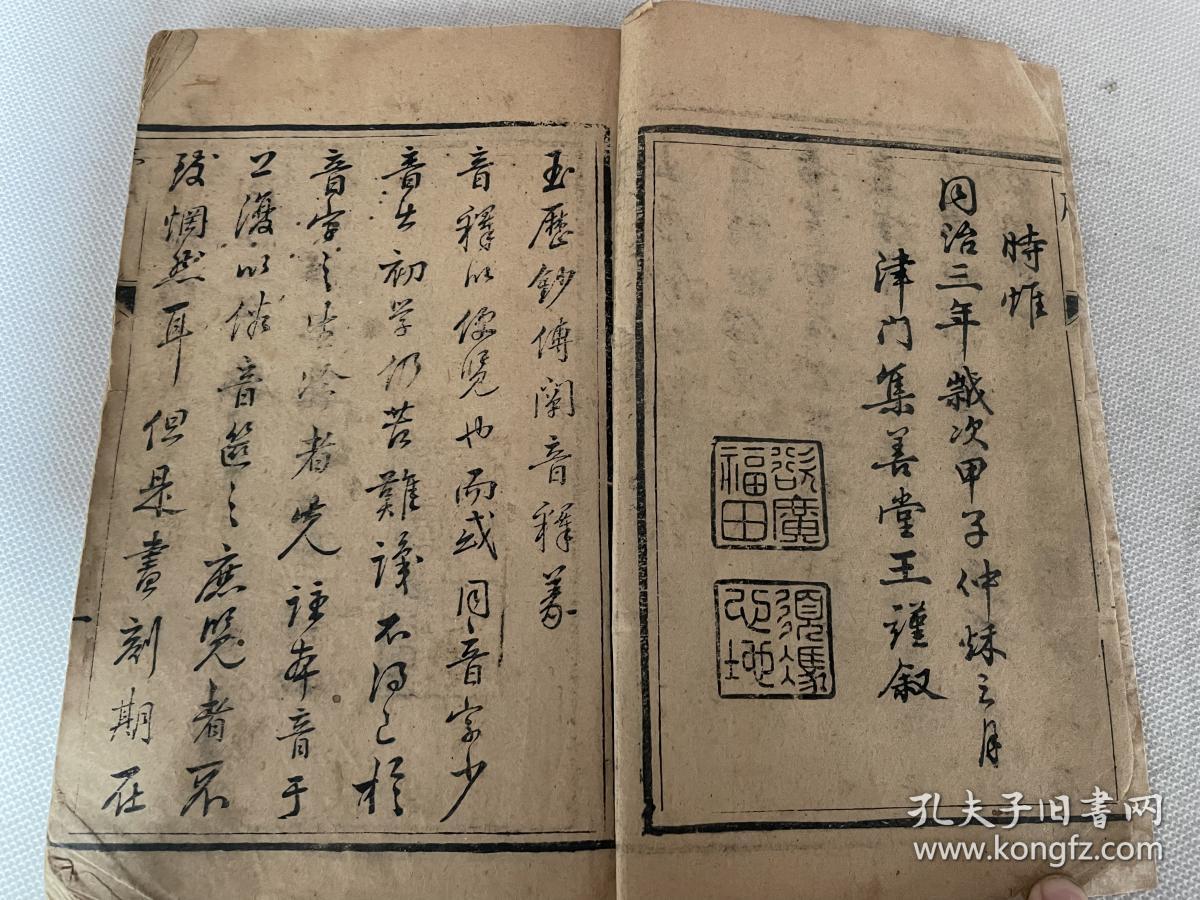 時惟
同治三年歲次甲子仲秌之月
津门集善堂王謹叙
欲廣福田
須憑心地
玉歷鈔傳闡音釋義
音釋以便覽也而或同音字少
音出初学仍苦難識不得已於
音字之生冷者先註本音于
上復以俗音籤之庶覽者不
致惘然耳但是書刻期在
孔夫子旧書网
www.kongfz.com